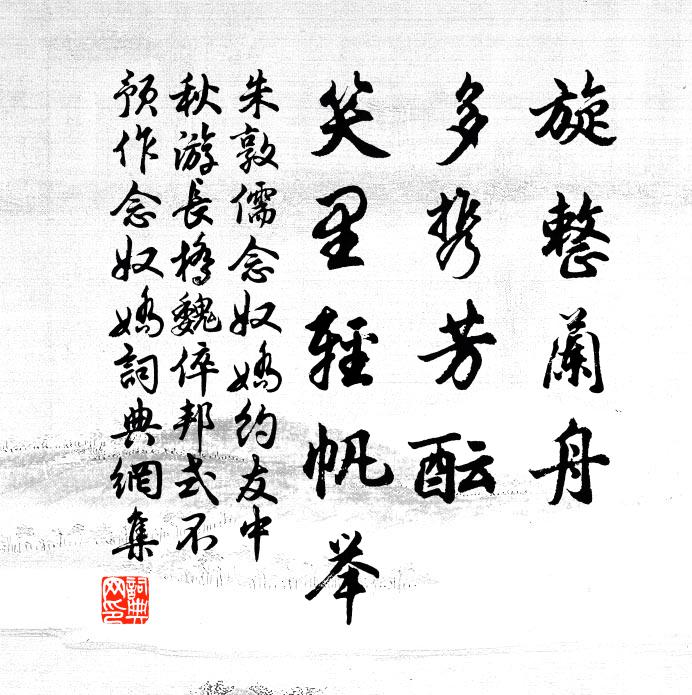 旋整蘭舟
多携芳酝
笑里輕帆举
朱敦儒念奴嬌約友中
秋游長橋魏倅邦式不
預作念奴嬌詞典網集
詞典
网印